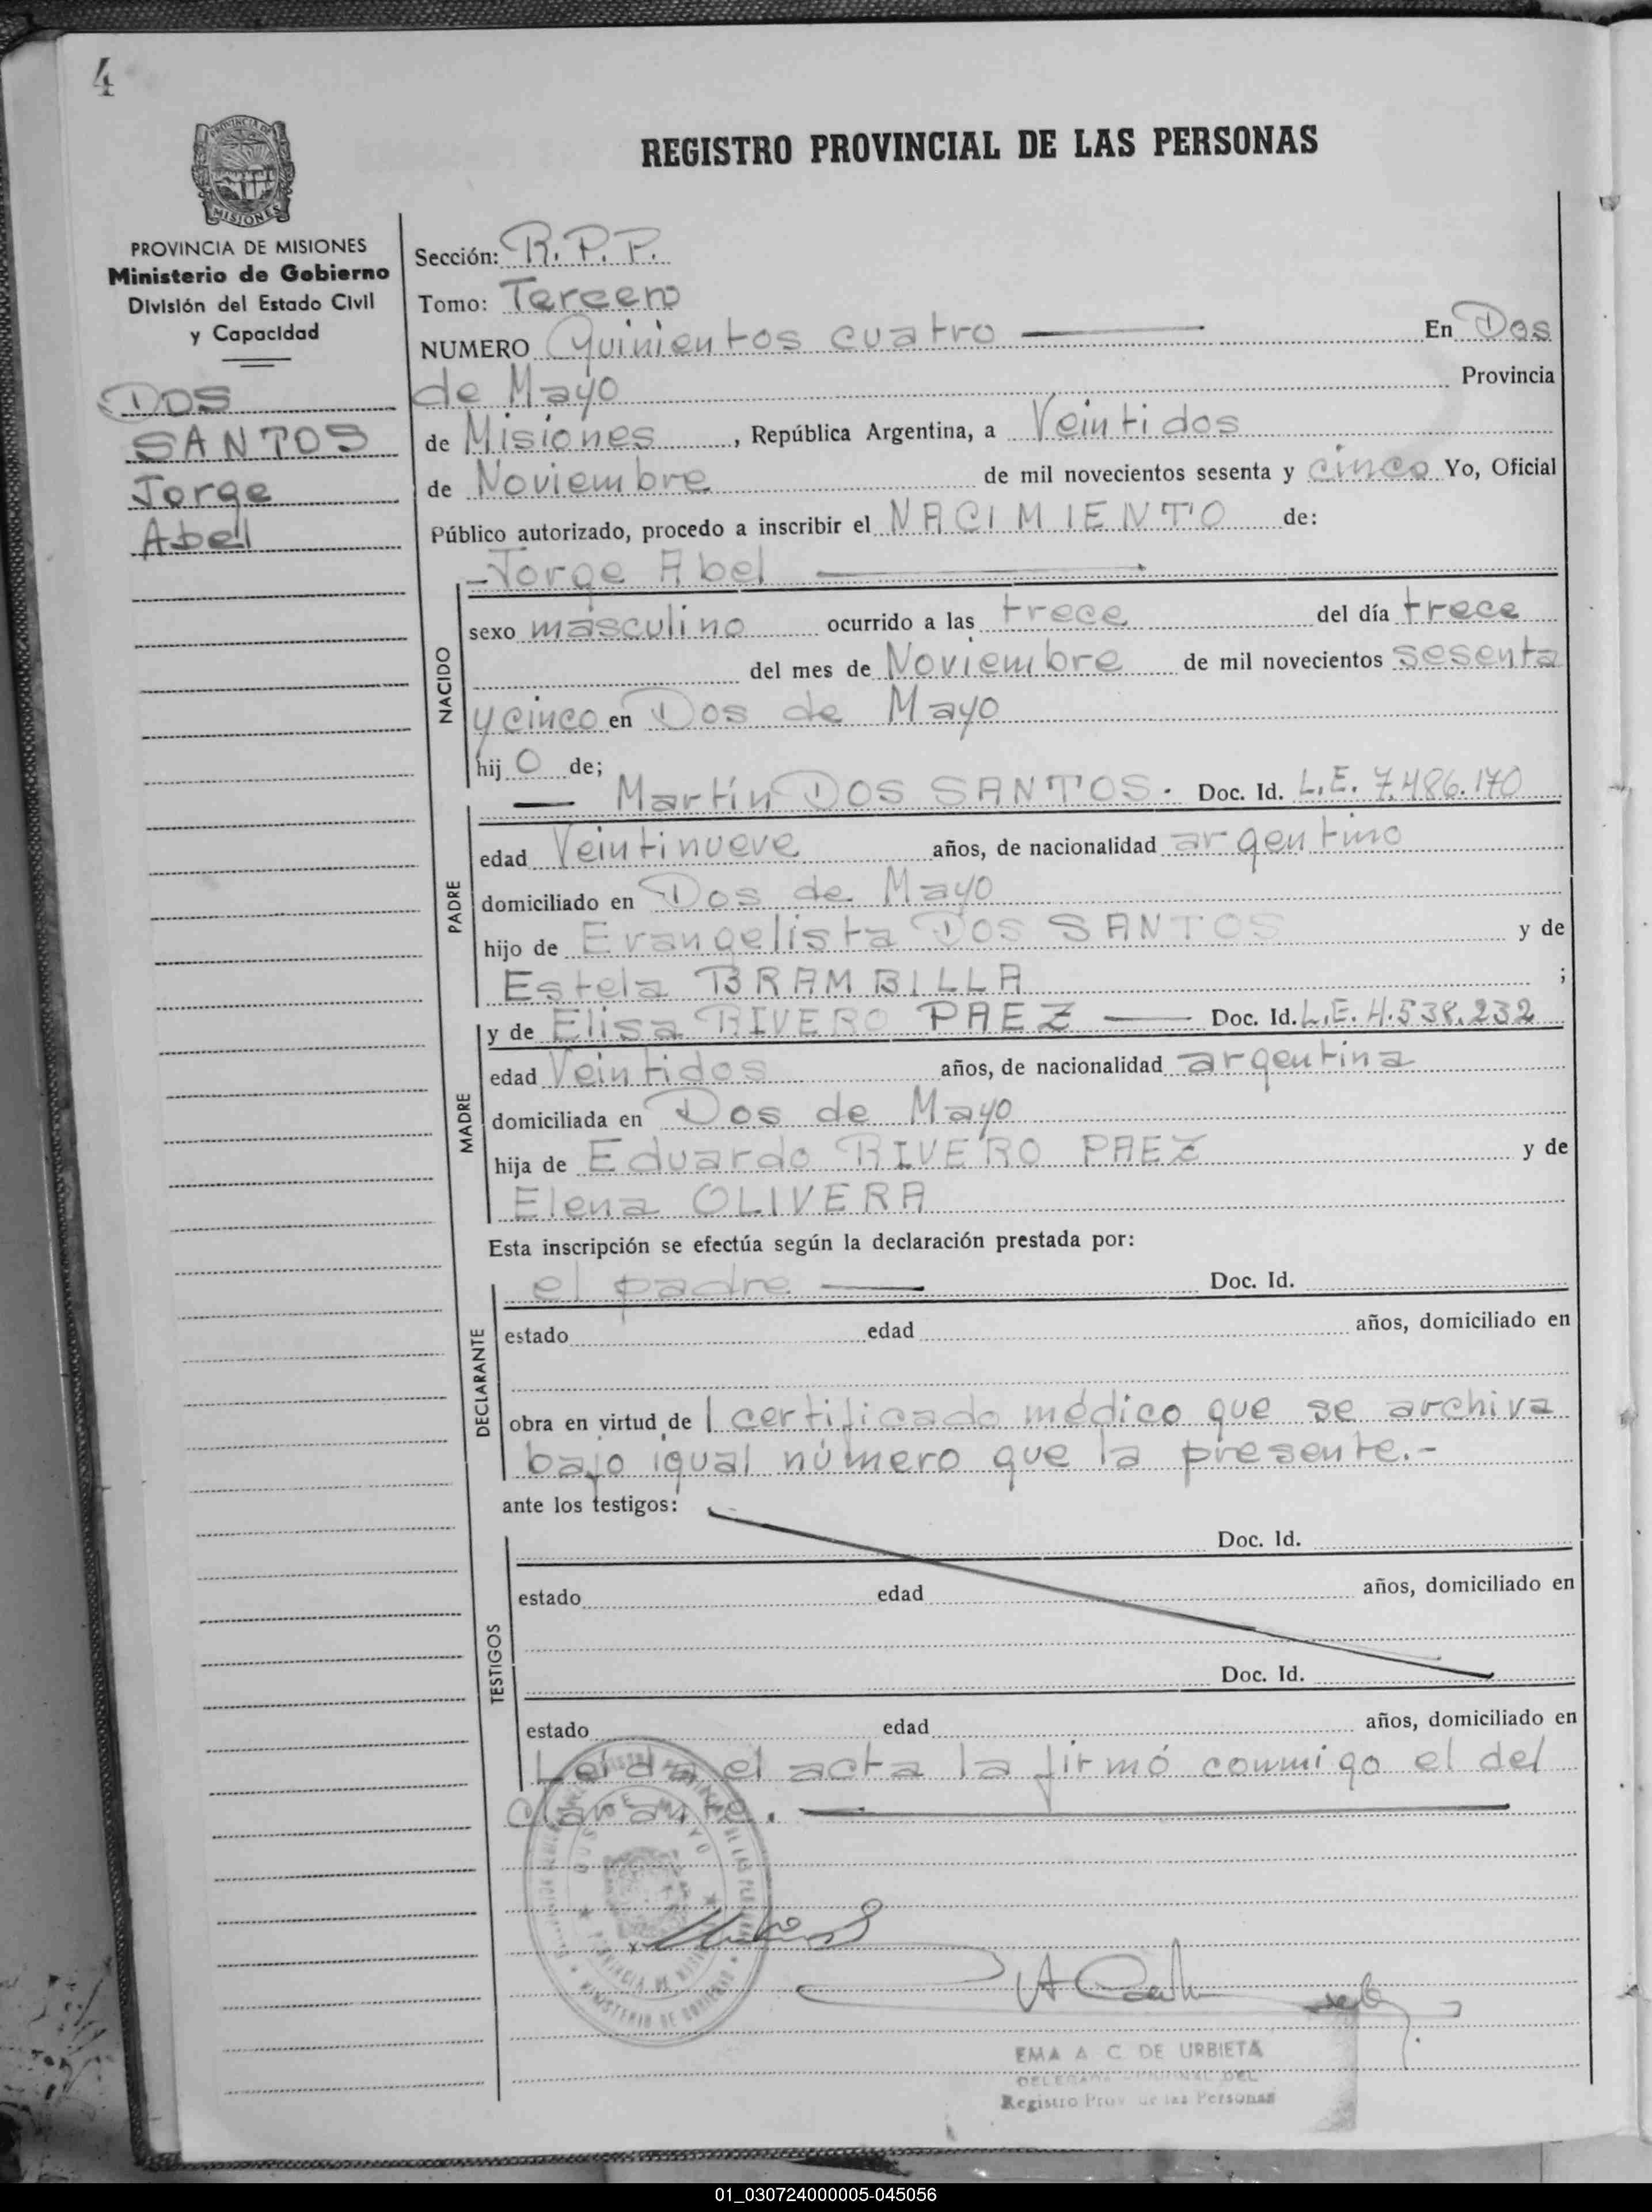 4
PROVINCIA DE MISIONES
MISIONES
PROVINCIA DE MISIONES
Ministerio de Gobierno
División del Estado Civil
y Capacidad
DOS
SANTOS
Jorge
Abel
REGISTRO PROVINCIAL DE LAS PERSONAS
Sección: R.P.P.
Tomo: Tercero
NUMERO Quinientos cuatro En Dos
de Mayo Provincia
de Misiones, República Argentina, a Veintidos
de Noviembre de mil novecientos sesenta y cinco Yo, Oficial
Público autorizado, procedo a inscribir el NACIMIENTO de:
Jorge Abel
NACIDO
sexo masculino ocurrido a las trece del día trece
del mes de Noviembre de mil novecientos sesenta
y cinco en Dos de Mayo
hij o de;
PADRE
Martín DOS SANTOS. Doc. Id. L.E. 7.486.170
edad Veintinueve años, de nacionalidad argentino
domiciliado en Dos de Mayo
hijo de Evangelista DOS SANTOS y de
Estela BRAMBILLA ;
MADRE
y de Elisa RIVERO PAEZ Doc. Id. L.E. 4.538.232
edad Veintidos años, de nacionalidad argentina
domiciliada en Dos de Mayo
hija de Eduardo RIVERO PAEZ y de
Elena OLIVERA
Esta inscripción se efectúa según la declaración prestada por:
DECLARANTE
el padre Doc. Id.
estado edad años, domiciliado en
obra en virtud de l certificado médico que se archiva
bajo igual número que la presente.-
ante los testigos:
TESTIGOS
Doc. Id.
estado edad años, domiciliado en
Doc. Id.
estado edad años, domiciliado en
Leida el acta la firmó conmigo el de
clarante.
DOS DE MAYO
MINISTERIO DE GOBIERNO
EMA A C DE URBIETA
Registro Prov de las Personas
01_030724000005-045056